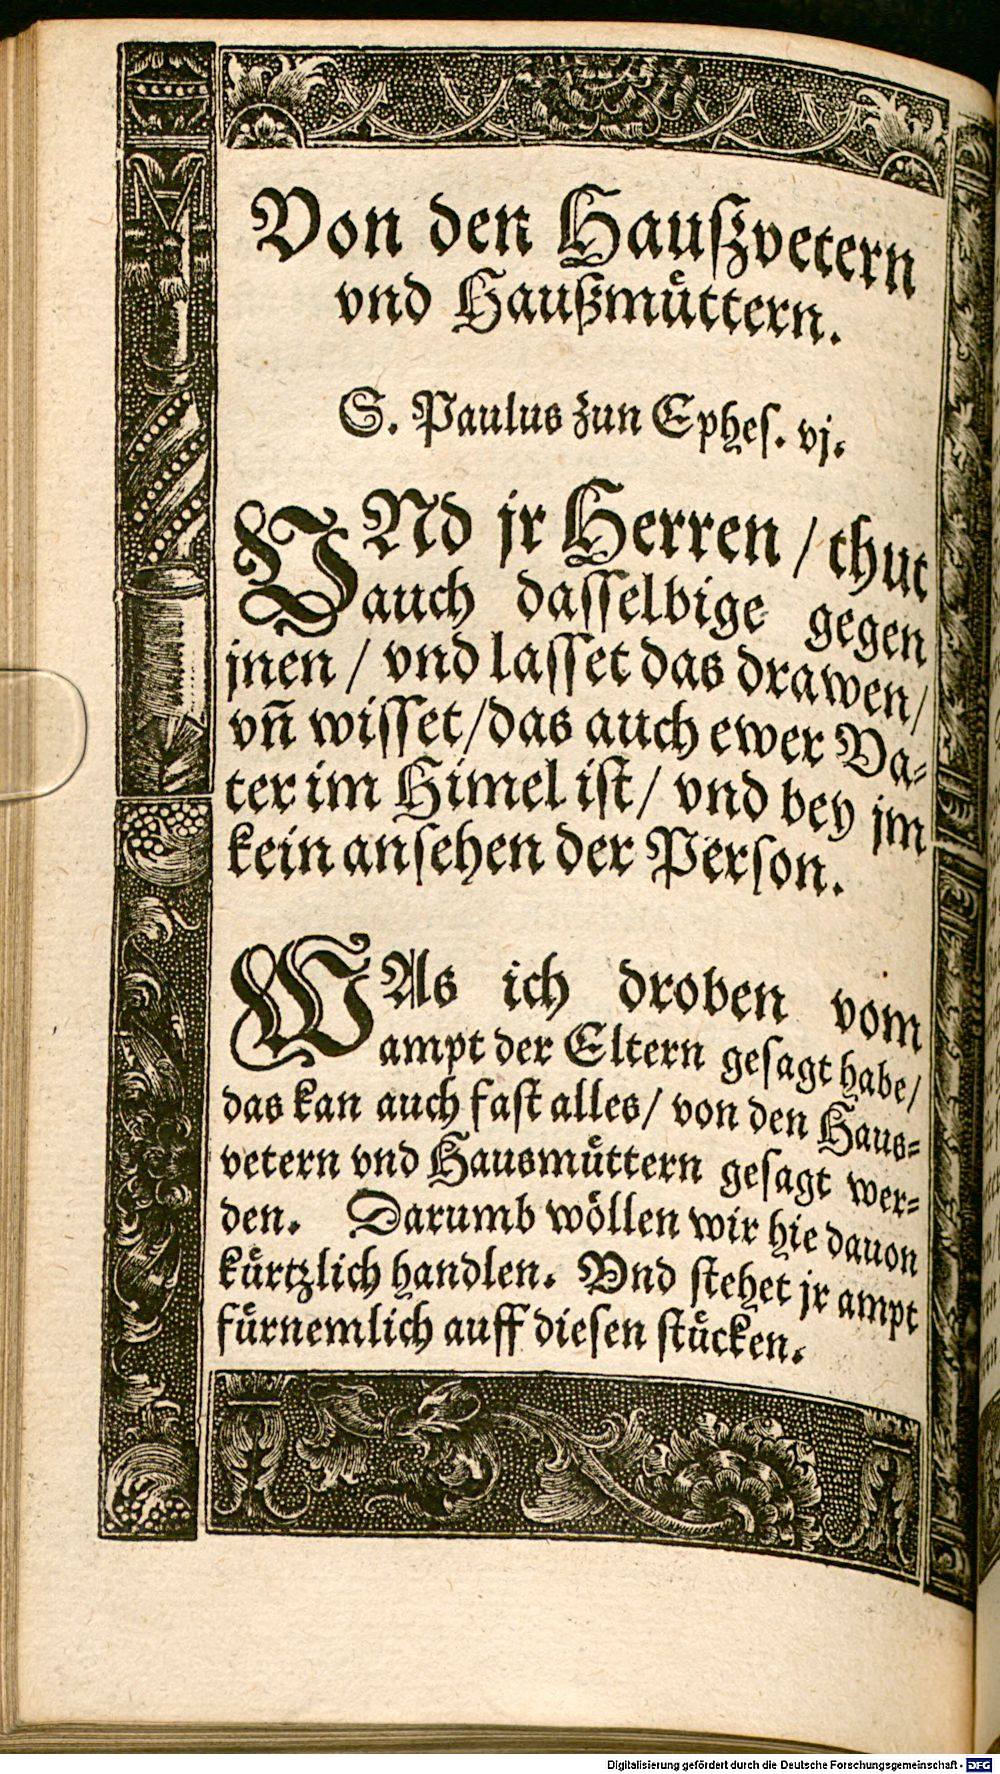 Von den Hauſzvetern
vnd Haußmuͤttern.
S. Paulus zun Epheſ. vj.
VNd jr Herren / thut
auch daſſelbige gegen
jnen / vnd laſſet das drawen /
vñ wiſſet / das auch ewer Va⸗
ter im Himel iſt / vnd bey jm
kein anſehen der Perſon.
WAs ich droben vom
ampt der Eltern geſagt habe /
das kan auch faſt alles / von den Haus⸗
vetern vnd Hausmuͤttern geſagt wer⸗
den. Darumb woͤllen wir hie dauon
kuͤrtzlich handlen. Vnd ſtehet jr ampt
fuͤrnemlich auff dieſen ſtuͤcken.
Digitalisierung gefördert durch die Deutsche Forschungsgemeinschaft - DFG